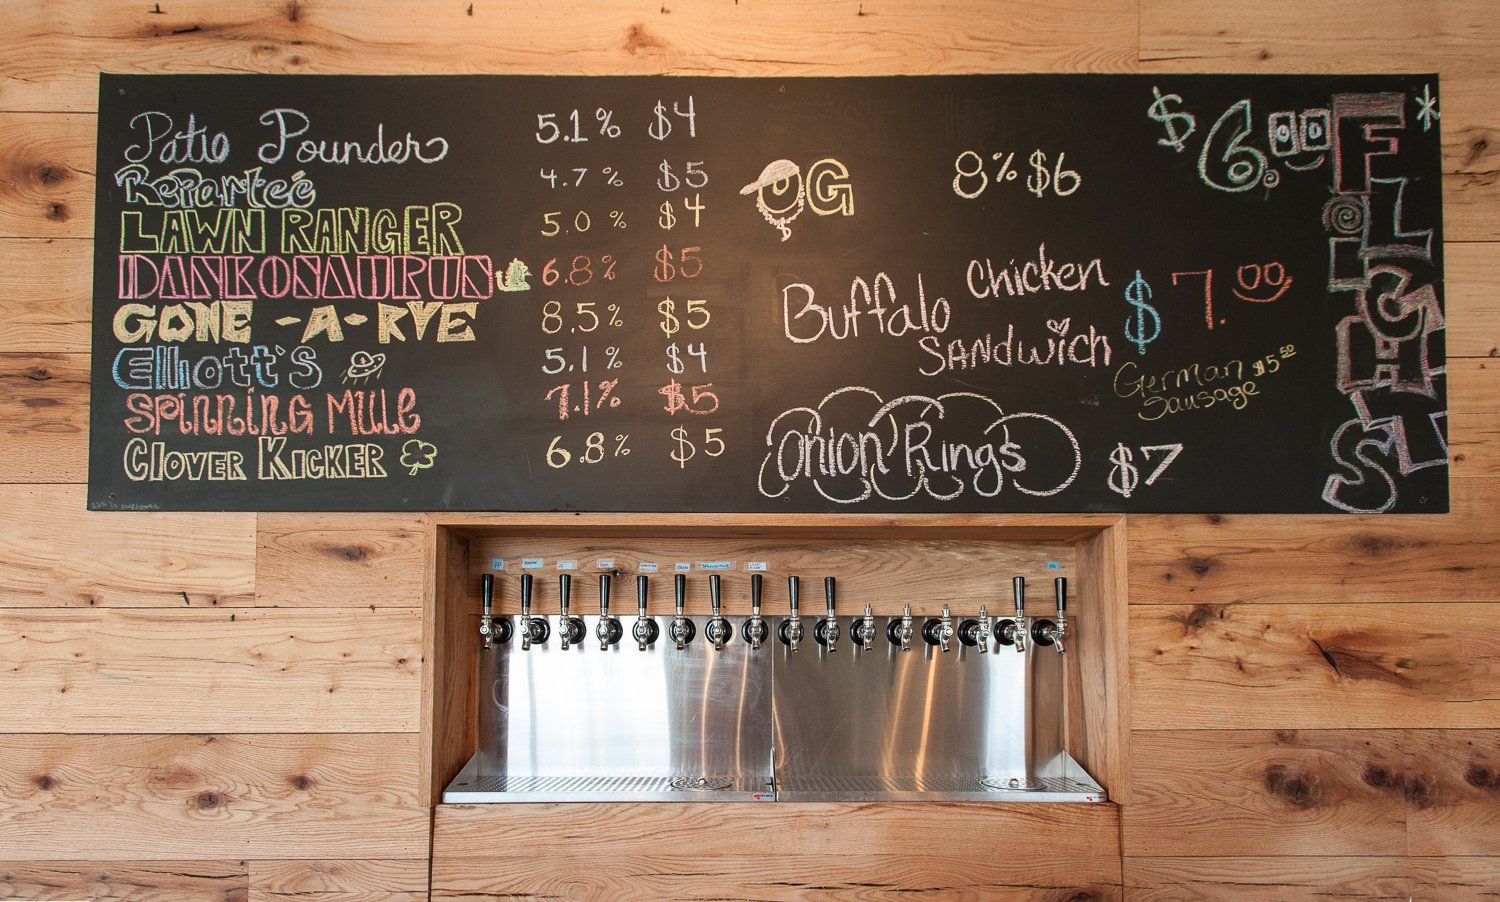 Patio Pounder 5.1% $4
ReParteé 4.7% $5
LAWN RANGER 5.0% $4
DANKOSAURUS 6.8% $5
GONE-A-RYE 8.5% $5
Elliott's 5.1% $4
SPINNING MULE 7.1% $5
CLOVER KICKER 6.8% $5
OG 8% $6
$6.00
FILLCHS
Buffalo Chicken
SANDwich $7.00
German $5.50
Sausage
Onion Rings $7